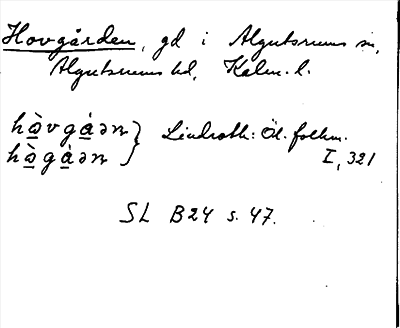 Hovgården, gd i Algutsrums sn,
Algutsrums hd, Kalm. l.
hɔ̀vgáən } Lindroth: Öl. folkm.
hɔ̀gáən } I, 321
SL B24 s. 47.